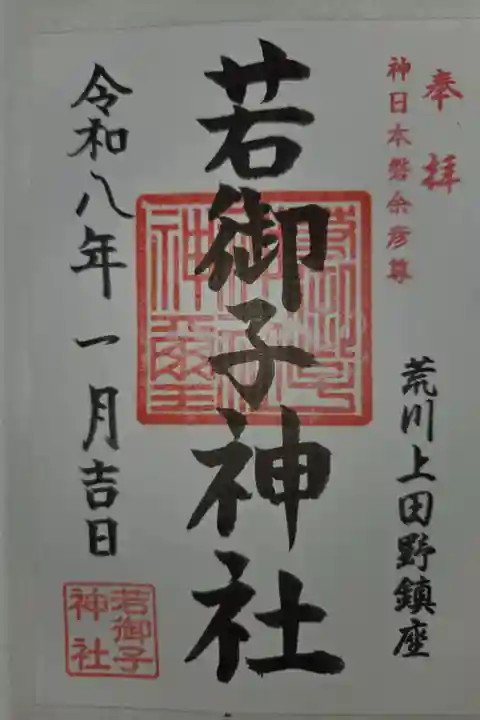 奉拝
神日本磐余彦尊
荒川上田野鎮座
若御子神社
令和八年一月吉日
若御子
神社